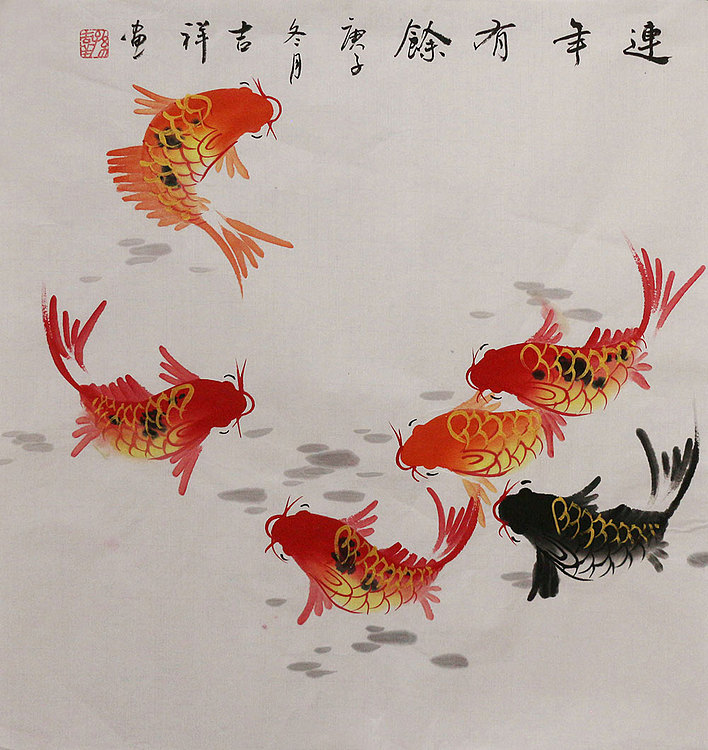 連年有餘
庚子
冬月
吉祥画